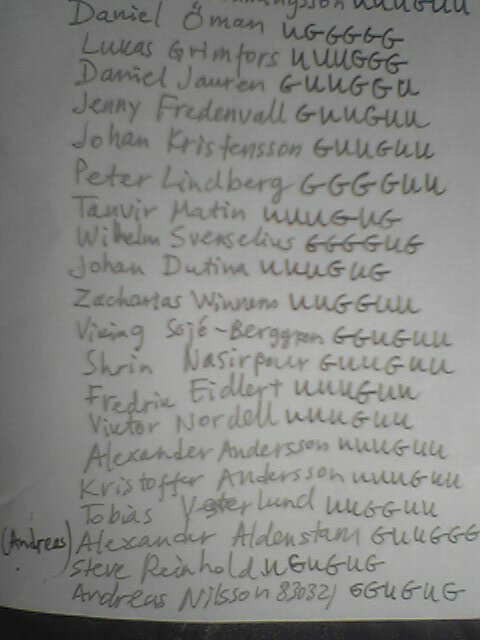 Daniel Öman UGGGGG
Lukas Grimfors UUUGGG
Daniel Jauren GUUGGU
Jenny Fredenvall GUUGUU
Johan Kristensson GUUGUU
Peter Lindberg GGGGUU
Tanvir Matin UUUGUG
Wilhelm Svenselius GGGGUG
Johan Dutina UUUGUG
Zacharias Winnem UUGGUU
Viking Sojé-Berggren GGUGUU
Shrin Nasirpour GUUGUU
Fredrik Eidlert UUUGUU
Viktor Nordell UUUGUU
Alexander Andersson UUUGUU
Kristoffer Andersson UUUGUU
Tobias lund UUGGUU
(Andreas) Alexander Aldenstam GUUGGG
Steve Reinhold UGUGUG
Andreas Nilsson 830321 GGUGUG